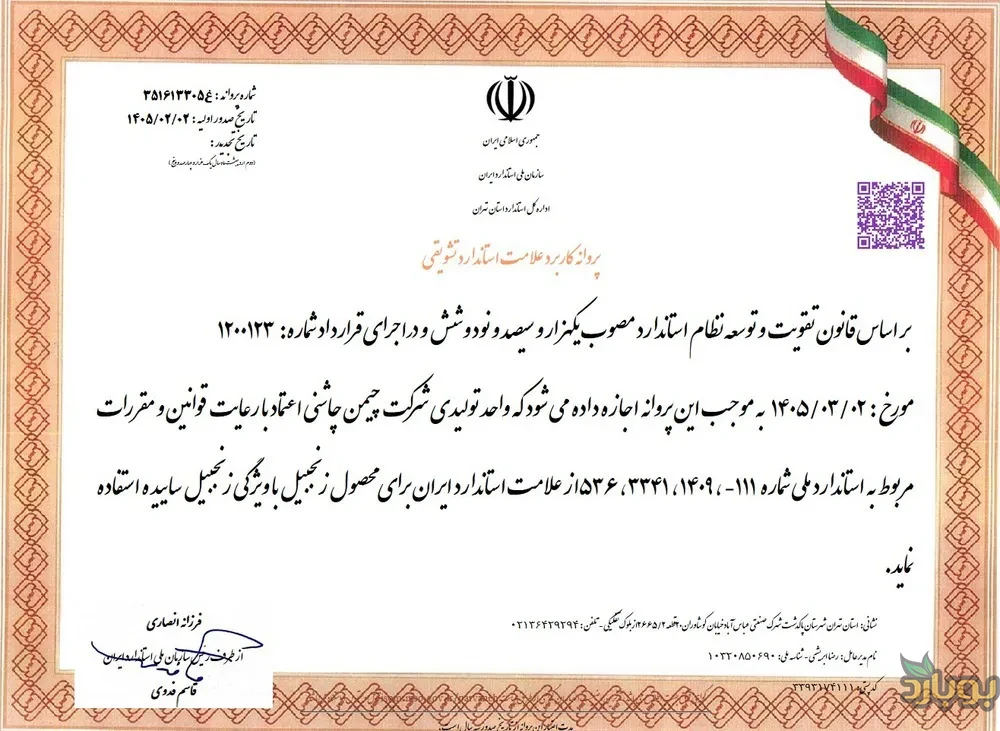 شماره پروانه: ع۳۵۱۶۱۳۳۰۵
تاریخ صدور اولیه: ۱۴۰۵/۰۲/۰۲
تاریخ تمدید:
جمهوری اسلامی ایران
سازمان ملی استاندارد ایران
اداره کل استاندارد استان تهران
پروانه کاربرد علامت استاندارد تشویقی
بر اساس قانون تقویت و توسعه نظام استاندارد مصوب یکهزار و سیصد و نود و شش و در اجرای قرارداد شماره: ۱۲۰۰۱۲۳
مورخ: ۱۴۰۵/۰۳/۰۲ به موجب این پروانه اجازه داده می شود که واحد تولیدی شرکت چیمن چاشنی اعتماد با رعایت قوانین و مقررات
مربوط به استاندارد ملی شماره ۱۱۱-، ۱۴۰۹، ۳۳۴۱، ۵۳۶ از علامت استاندارد ایران برای محصول زنجبیل با ویژگی زنجبیل ساییده استفاده
نماید.
فرزانه انصاری
از طرف رئیس سازمان ملی استاندارد ایران
قاسم فدوی
نشانی: استان تهران شهرستان پاکدشت شهرک صنعتی عباس آباد خیابان کوشاوران ۲۰ قطعه ۲۶۶۵/۲ از بلوک تفکیکی - تلفن: ۰۲۱۳۶۴۲۹۲۹۴
نام مدیرعامل: رضا ابریشمی - شناسه ملی: ۱۰۳۲۰۸۵۰۶۹۰
کدپستی: ۳۳۹۳۱۷۴۱۱۱
مدت اعتبار این پروانه از تاریخ صدور سه سال است.
بوبارد